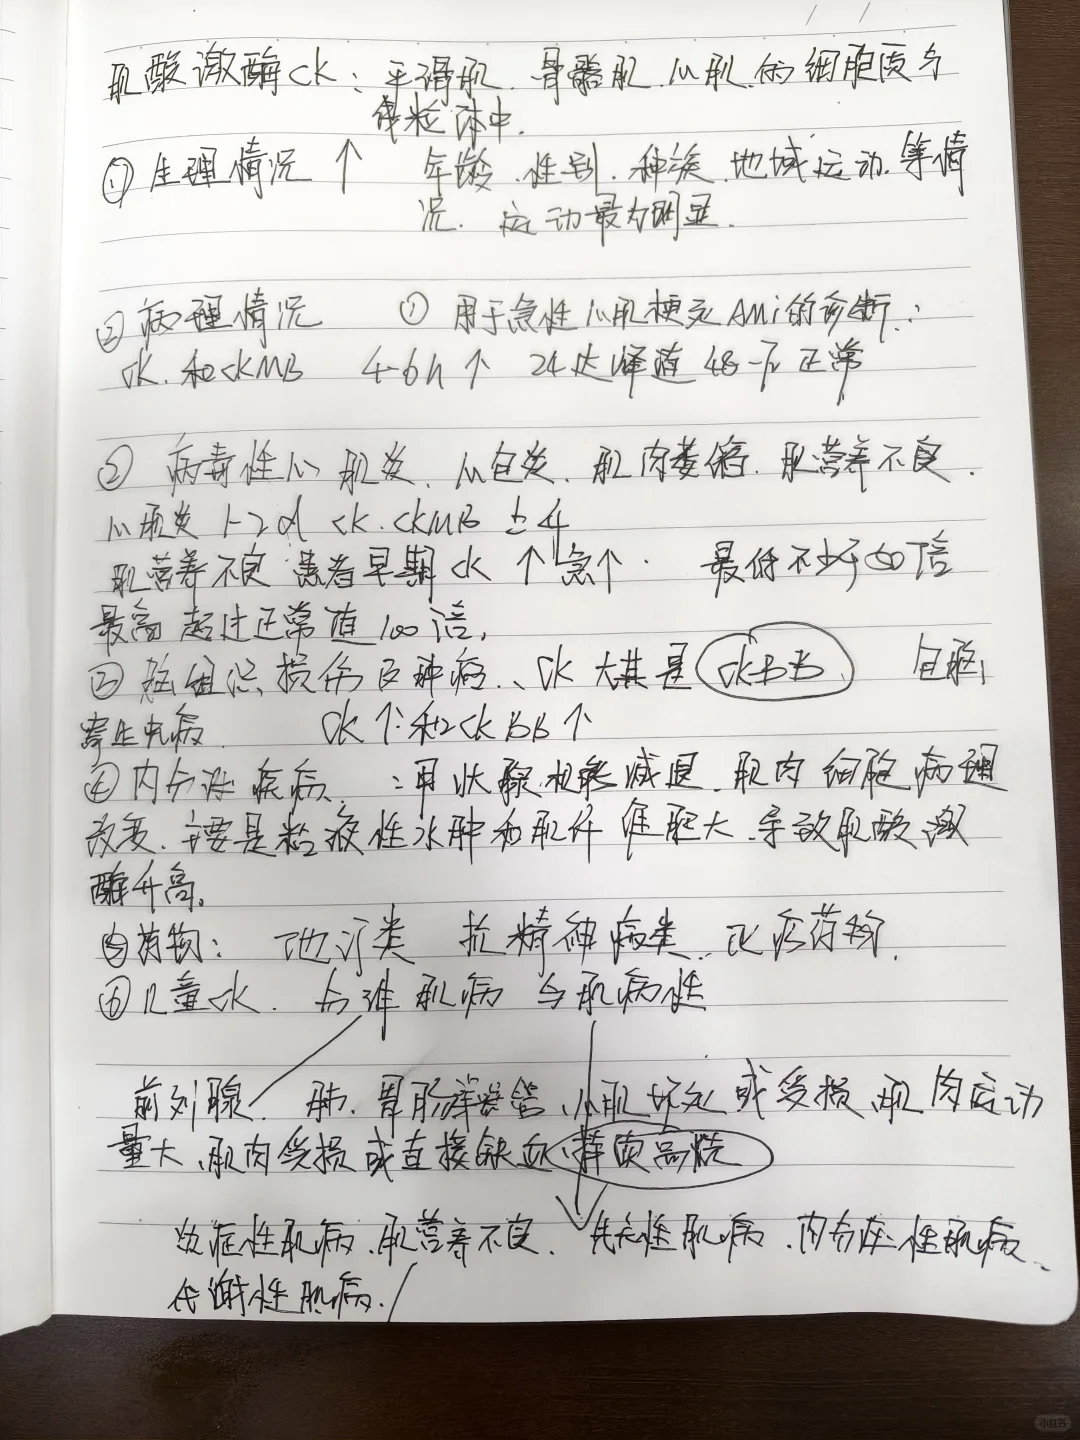 肌酸激酶CK：平滑肌、骨骼肌、心肌、的细胞质与
线粒体中.
① 生理情况 ↑ 年龄、性别、种族、地域运动、等情
况. 运动最为明显.
② 病理情况 ① 用于急性心肌梗死AMi的诊断：
CK.和CKMB 4-6h↑ 24达峰值 48-72正常
② 病毒性心肌炎、心包炎、肌肉萎缩、肌营养不良.
心肌炎 1-2d CK.CKMB
肌营养不良 患者早期CK ↑急↑. 最低不少于60倍
最高超过正常值100倍,
③ 脑组织损伤及肿瘤、CK尤其是CKBB
寄生虫病 CK↑和CKBB↑
④内分泌疾病、：甲状腺机能减退、肌肉细胞病理
改变、主要是粘液性水肿和肌纤维肥大.导致肌酸激
酶升高。
⑤药物： 他汀类 抗精神病类、化疗药物.
⑥儿童CK. 与非肌病 与肌病性
前列腺、肺、胃肠 心肌坏死或受损、肌肉运动
量大、肌肉受损或直接缺血、高烧
炎症性肌病、肌营养不良、先天性肌病、内分泌性肌病、
代谢性肌病.
小红书